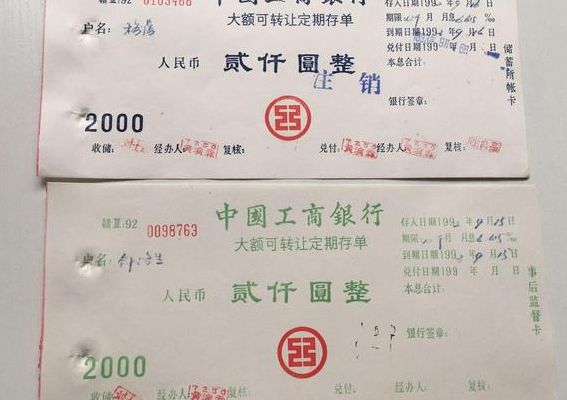 赣Ⅲ:92 0103466
中國工商銀行
大额可转让定期存单
户名:
人民币 贰仟圆整
注销
2000
收储: 经办人: 复核: 兑付: 经办人: 复核:
存入日期199 年 月 日
期限 月 月息 ‰
到期日期199 年 月 日
兑付日期199 年 月 日
本息合计:
银行签章:
储蓄所帐卡
赣Ⅲ:92 0098763
中國工商銀行
大额可转让定期存单
户名:
人民币 贰仟圆整
2000
收储: 经办人: 复核: 兑付: 经办人: 复核:
存入日期199 年9月15日
期限 月 月息 ‰
到期日期199 年 月15日
兑付日期199 年 月 日
本息合计:
银行签章:
事后监督卡